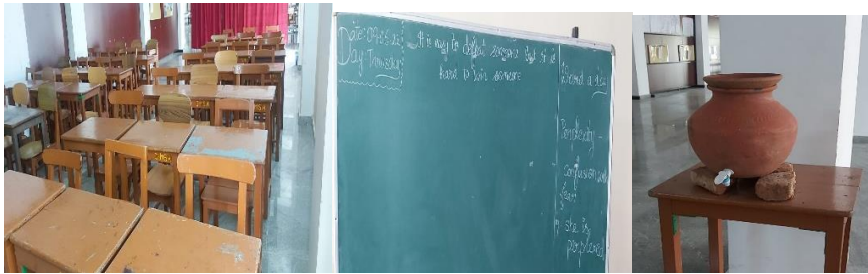 Date: 09-05-
Day- Thursday
It is easy to defeat someone but it is
hard to win someone
Word a day
Perplexity -
confusion and
fear
she is
perplexed